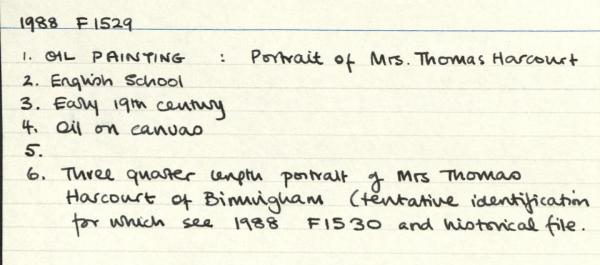 1988 F1529
1. OIL PAINTING : Portrait of Mrs. Thomas Harcourt
2. English School
3. Early 19th century
4. Oil on canvas
5.
6. Three quarter length portrait of Mrs Thomas
Harcourt of Birmingham (tentative identification
for which see 1988 F1530 and historical file.